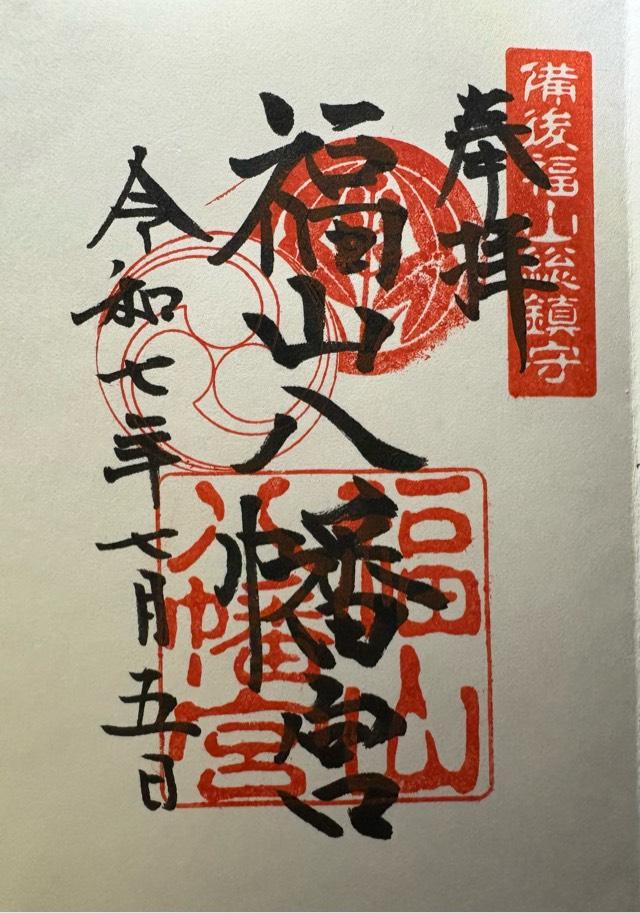 備後福山総鎮守
奉拝
福山八幡宮
福山
八幡宮
令和七年七月五日